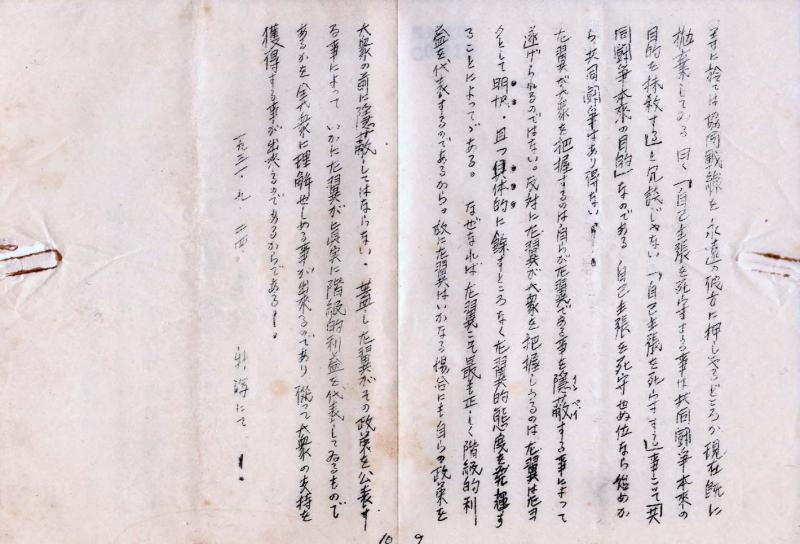 寺に於ては協同戦線を永遠の彼方に押しやるどころか現在既に
抛棄してゐる 曰く「自己主張を死守する事は共同闘争本来の
目的を抹殺する」と冗談じゃない「自己主張を死守する」事こそ「共
同闘争本来の目的」なのである 自己主張を死守せぬ位なら始めか
ら共同闘争はあり得ない
左翼が大衆を把握するのは自らが左翼である事を隠蔽する事によって
遂げられるのではない。反対に左翼が大衆を把握しうるのは左翼は左ヨ
クとして明快、且つ具体的に餘すところなく左翼的態度を発揮す
ることによってゞある。 なぜなれば左翼こそ最も正しく階級的利
益を代表するのであるから。故に左翼はいかなる場合にも自らの政策を
9
大衆の前に隠蔽してはならない。 蓋し左翼がその政策を公表す
る事によって いかに左翼が真実に階級的利益を代表してゐるもので
あるかを全大衆に理解せしめる事が出来るのであり 従って大衆の支持を
獲得する事が出来るのであるからである!。
一九三一・九・二四
にて
10